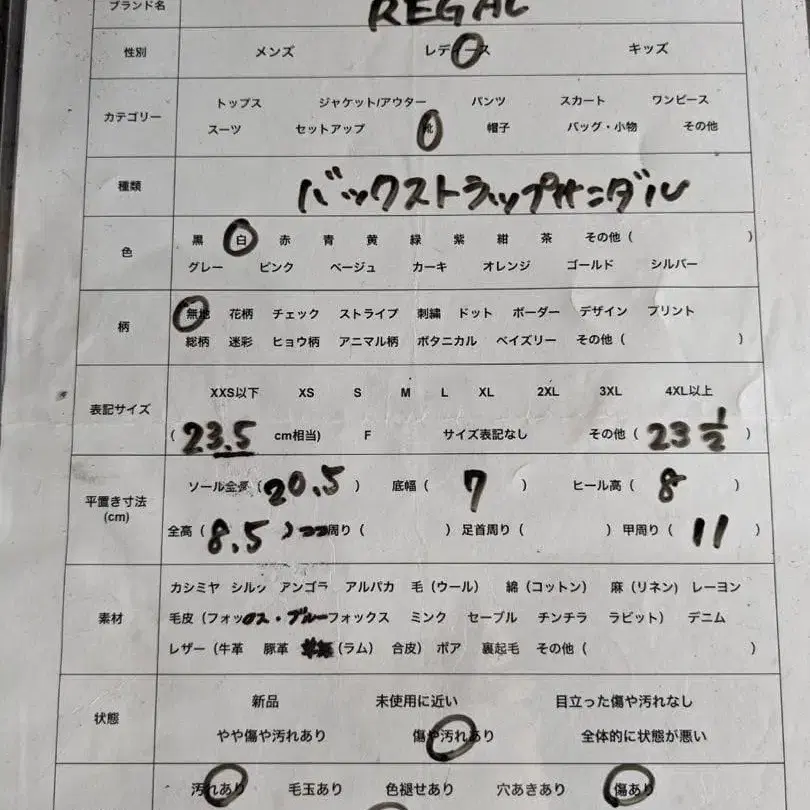 ブランド名 REGAL
性別 メンズ レディース キッズ
カテゴリー
トップス ジャケット/アウター パンツ スカート ワンピース
スーツ セットアップ 靴 帽子 バッグ・小物 その他
種類 バックストラップサンダル
色
黒 白 赤 青 黄 緑 紫 紺 茶 その他( )
グレー ピンク ベージュ カーキ オレンジ ゴールド シルバー
柄
無地 花柄 チェック ストライプ 刺繍 ドット ボーダー デザイン プリント
総柄 迷彩 ヒョウ柄 アニマル柄 ボタニカル ペイズリー その他( )
表記サイズ
XXS以下 XS S M L XL 2XL 3XL 4XL以上
(23.5 cm相当) F サイズ表記なし その他(23 1/2)
平置き寸法
(cm)
ソール全長(20.5) 底幅(7) ヒール高(8)
全高(8.5) 周り( ) 足首周り( ) 甲周り(11)
素材
カシミヤ シルク アンゴラ アルパカ 毛(ウール) 綿(コットン) 麻(リネン) レーヨン
毛皮(フォックス・ブルーフォックス ミンク セーブル チンチラ ラビット) デニム
レザー(牛革 豚革 (ラム) 合皮) ボア 裏起毛 その他( )
状態
新品 未使用に近い 目立った傷や汚れなし
やや傷や汚れあり 傷や汚れあり 全体的に状態が悪い
汚れあり 毛玉あり 色褪せあり 穴あきあり 傷あり